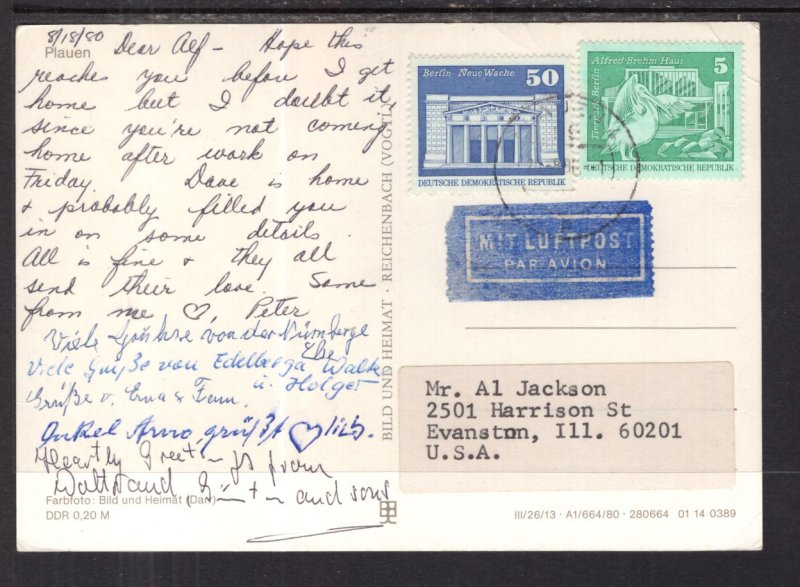 8/18/80
Plauen
Dear Alf - Hope this
reaches you before I get
home but I doubt it,
since you're not coming
home after work on
Friday. Dave is home
& probably filled you
in on some details.
All is fine & they all
send their love. Same
from me ♡, Peter
Viele Grüße von der
Viele Grüße von Edelberga, Walter
u. Holger
Grüße v. Erna &
Onkel Arno grüßt ♡lich.
Heartly Greetings from
Waltraud, and sons
Farbfoto: Bild und Heimat
DDR 0,20 M
BILD UND HEIMAT · REICHENBACH (VOGTL)
Berlin · Neue Wache 50
DEUTSCHE DEMOKRATISCHE REPUBLIK
Alfred-Brehm-Haus 5
Tierpark Berlin
DEUTSCHE DEMOKRATISCHE REPUBLIK
MIT LUFTPOST
PAR AVION
Mr. Al Jackson
2501 Harrison St
Evanston, Ill. 60201
U.S.A.
III/26/13 · A1/664/80 · 280664 01 14 0389